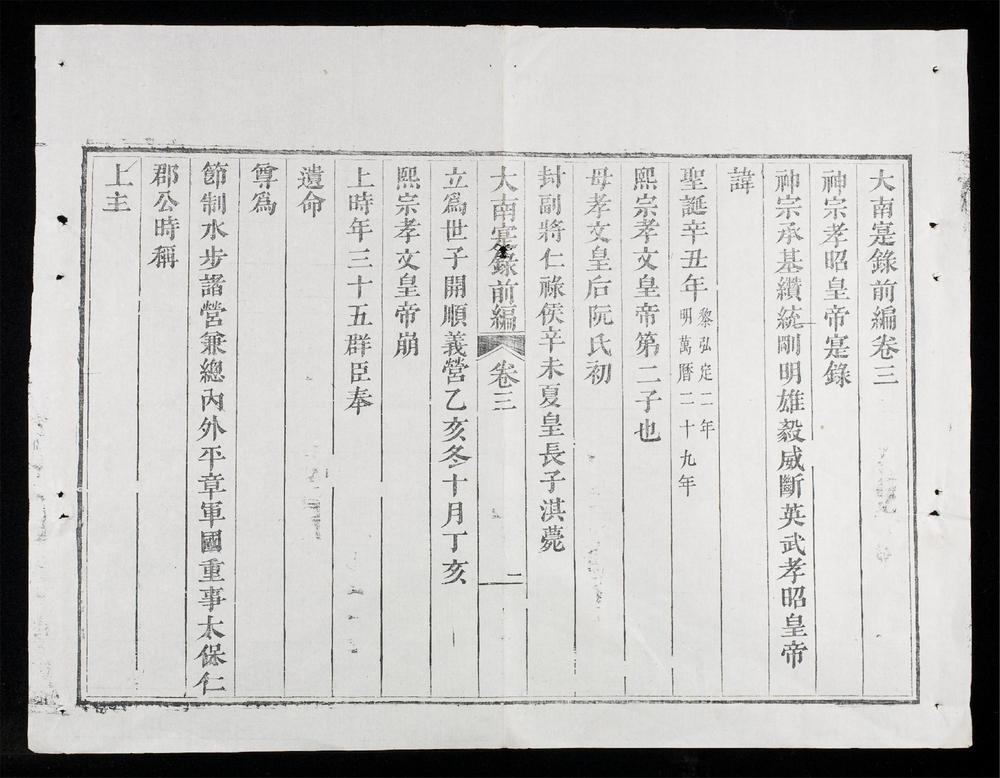 大南寔錄前編卷三
神宗孝昭皇帝寔錄
神宗承基纘統剛明雄毅威斷英武孝昭皇帝
諱
聖誕辛丑年黎弘定二年
明萬曆二十九年
熙宗孝文皇帝第二子也
母孝文皇后阮氏初
封副將仁祿侯辛未夏皇長子淇薨
大南寔錄前編 卷三 二
立爲世子開順義營乙亥冬十月丁亥
熙宗孝文皇帝崩
上時年三十五群臣奉
遺命
尊爲
節制水步諸營兼總內外平章軍國重事太保仁
郡公時稱
上主